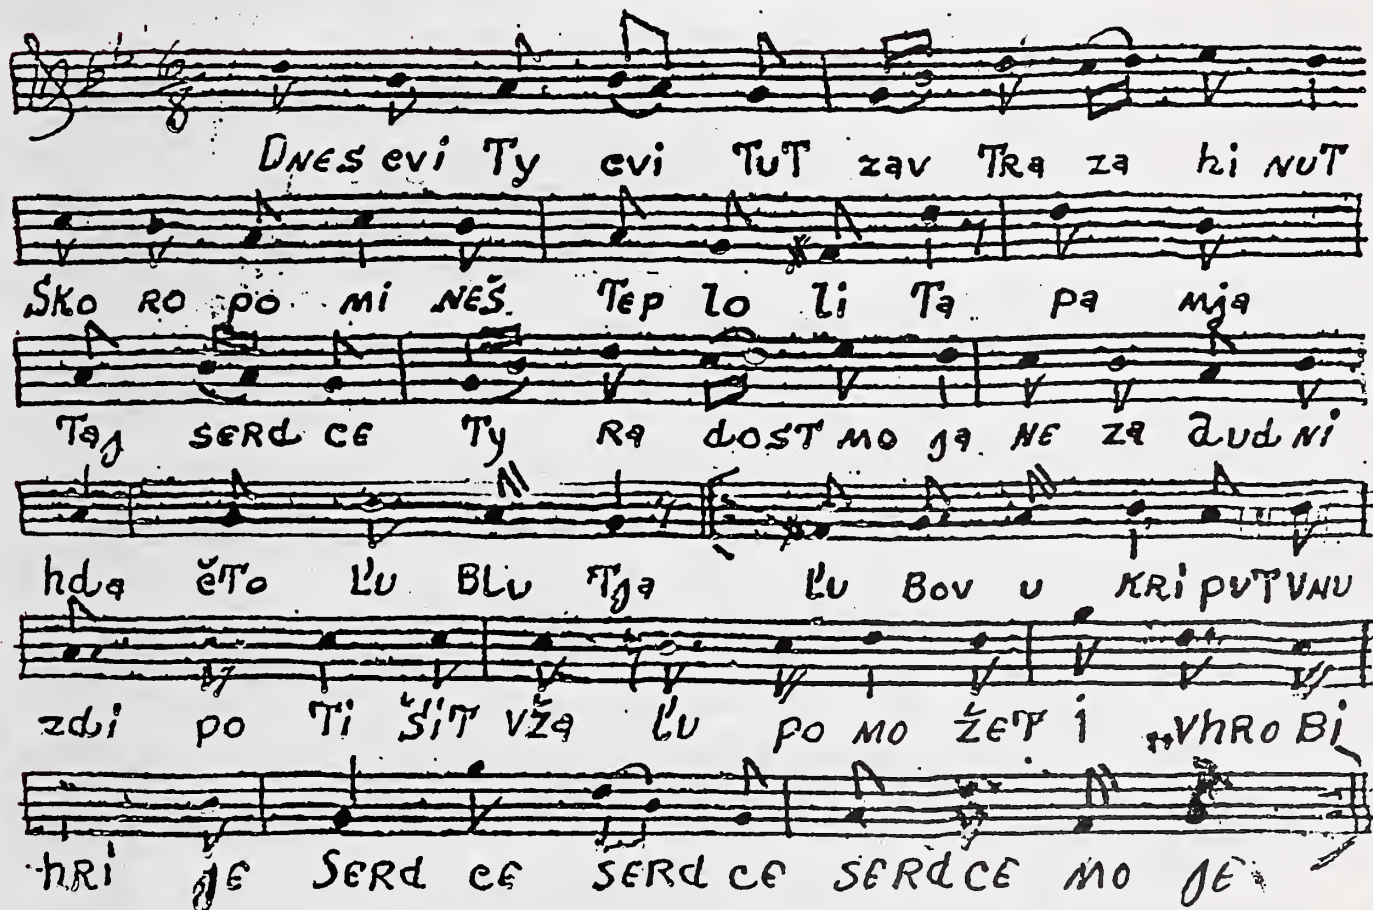 DNES cvi Ty cvi TUT zav TRa za hi NUT
Sko RO po mi NEŠ. TEP lo li Ta pa mja
Taj SERd CE Ty Ra dOST MO ja NE za dud Ni
hda čTO ĽU BLU Tja ĽU BOV U KRi puT VNU
zdi po Ti ŠiT Vža ĽU po MO ŽET i „VhRO Bi
hRi JE SERd CE SERd CE SERd CE MO JE